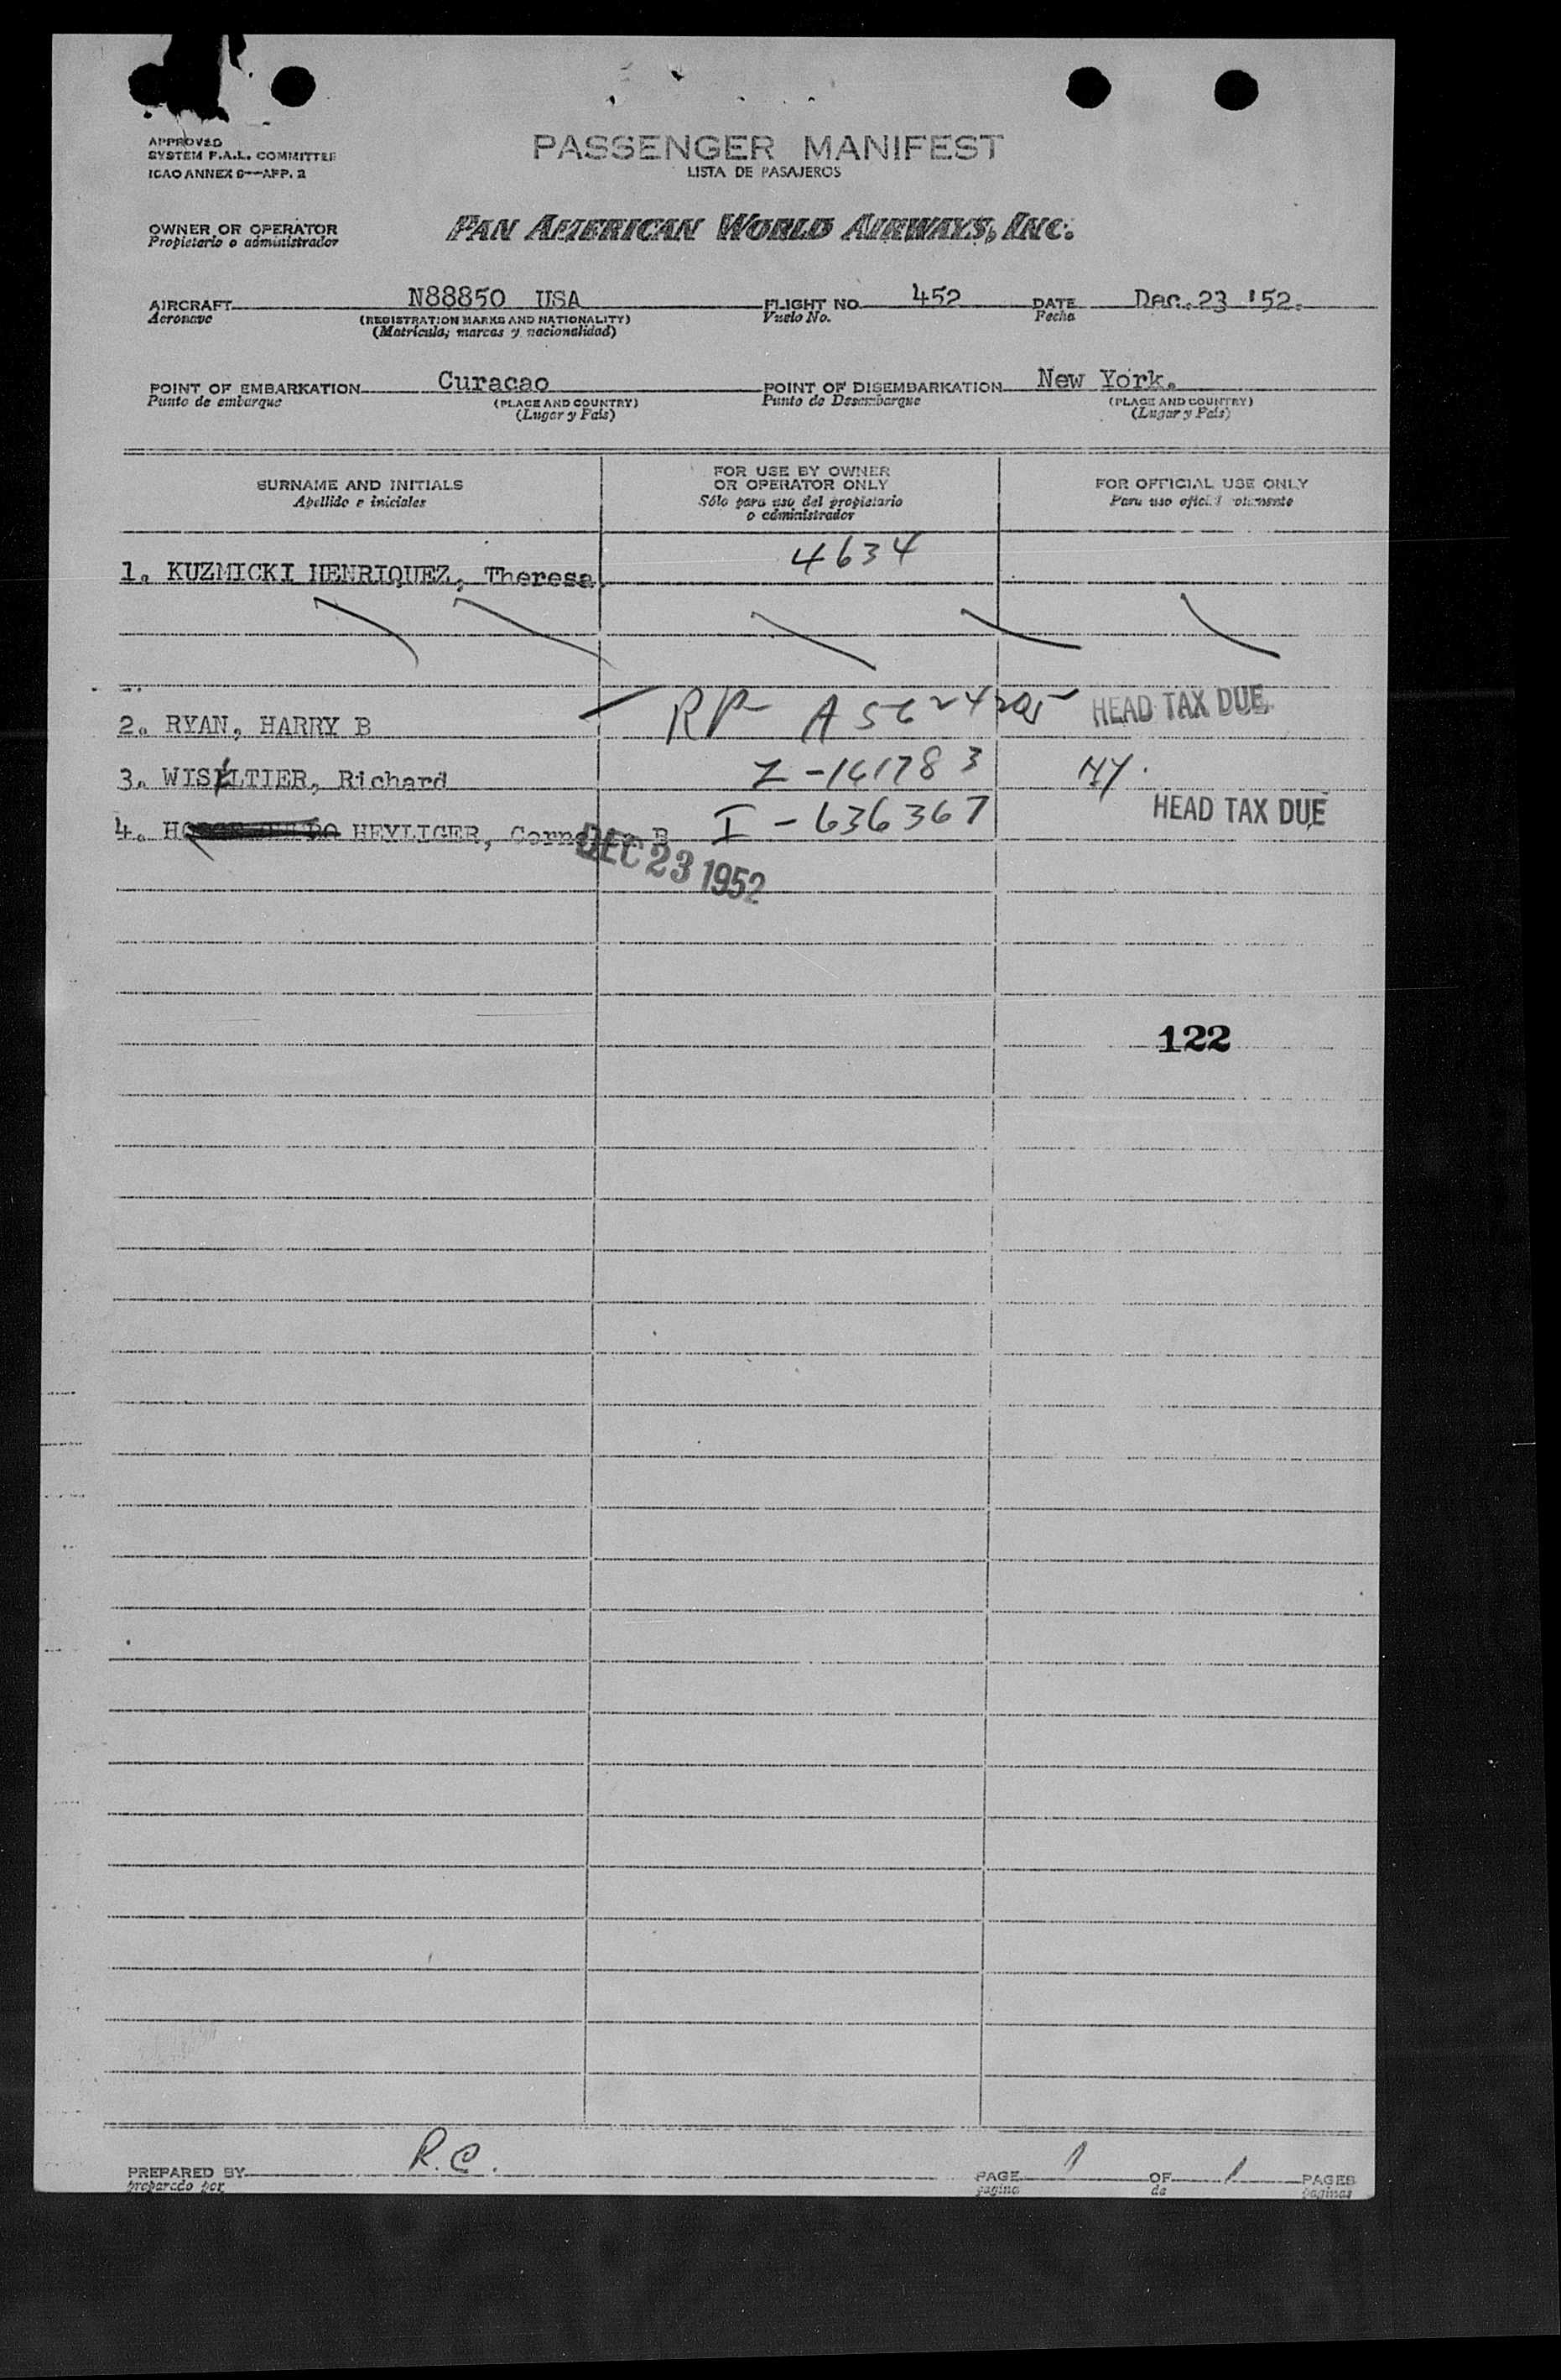 APPROVED
SYSTEM F.A.L. COMMITTEE
ICAO ANNEX 9—APP. 2
PASSENGER MANIFEST
LISTA DE PASAJEROS
OWNER OR OPERATOR
Propietario o administrador
PAN AMERICAN WORLD AIRWAYS, INC.
AIRCRAFT N88850 USA FLIGHT NO. 452 DATE Dec. 23 '52.
Aeronave (REGISTRATION MARKS AND NATIONALITY) Vuelo No. Fecha
(Matrícula; marcas y nacionalidad)
POINT OF EMBARKATION Curacao POINT OF DISEMBARKATION New York.
Punto de embarque (PLACE AND COUNTRY) Punto de Desembarque (PLACE AND COUNTRY)
(Lugar y País) (Lugar y País)
SURNAME AND INITIALS
Apellido e iniciales
FOR USE BY OWNER
OR OPERATOR ONLY
Sólo para uso del propietario
o administrador
FOR OFFICIAL USE ONLY
Para uso oficial solamente
1. KUZMICKI HENRIQUEZ, Theresa. 4634
2. RYAN, HARRY B RP A HEAD TAX DUE
3. WISELTIER, Richard NY.
4. HEYLIGER, B I-636367 HEAD TAX DUE
DEC 23 1952
122
PREPARED BY R.C. PAGE 1 OF 1 PAGES
preparado por pagina de paginas